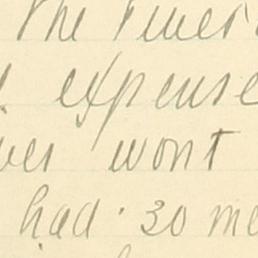 The River
expense
ver wont
had. 30 me